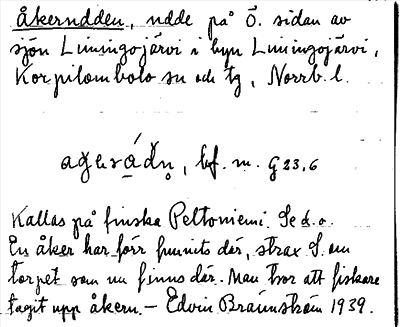 Åkerudden, udde på Ö. sidan av
sjön Liviöjärvi i byn Liviöjärvi,
Korpilombolo sn och tg, Norrb. l.
bf. m. G 23,6
Kallas på finska Peltoniemi. Se d.o.
En åker har förr funnits där, strax S. om
torpet som nu finns där. Man tror att fiskare
tagit upp åkern. – Edvin Brännström 1939.